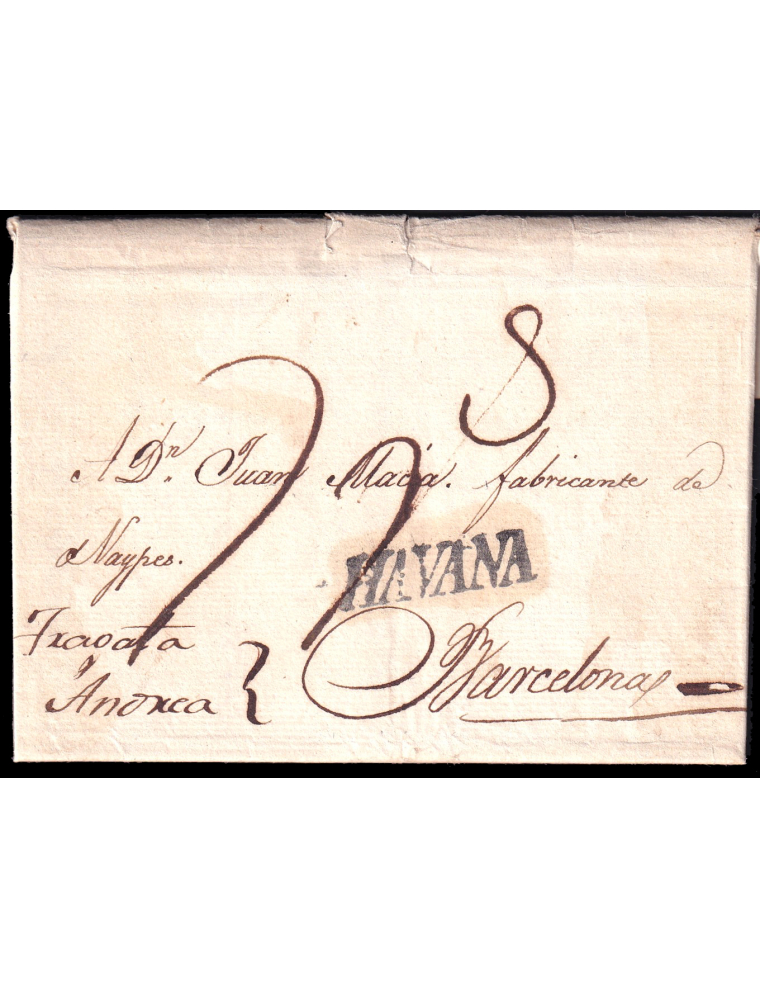 8
A Dn. Juan Maciá. fabricante de
Naypes.
HAVANA
Fragata
Andrea
Barcelona